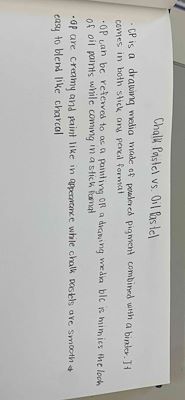 Chalk Pastel vs. Oil Pastel
· CP is a drawing media made of powdered pigment combined with a binder. It
comes in both stick any pencil format
· OP can be referred to as a painting or a drawing media b/c is mimics the look
of oil paints while coming in a stick format
· OP are creamy and paint like in appearance while chalk pastels are smooth &
easy to blend like charcoal